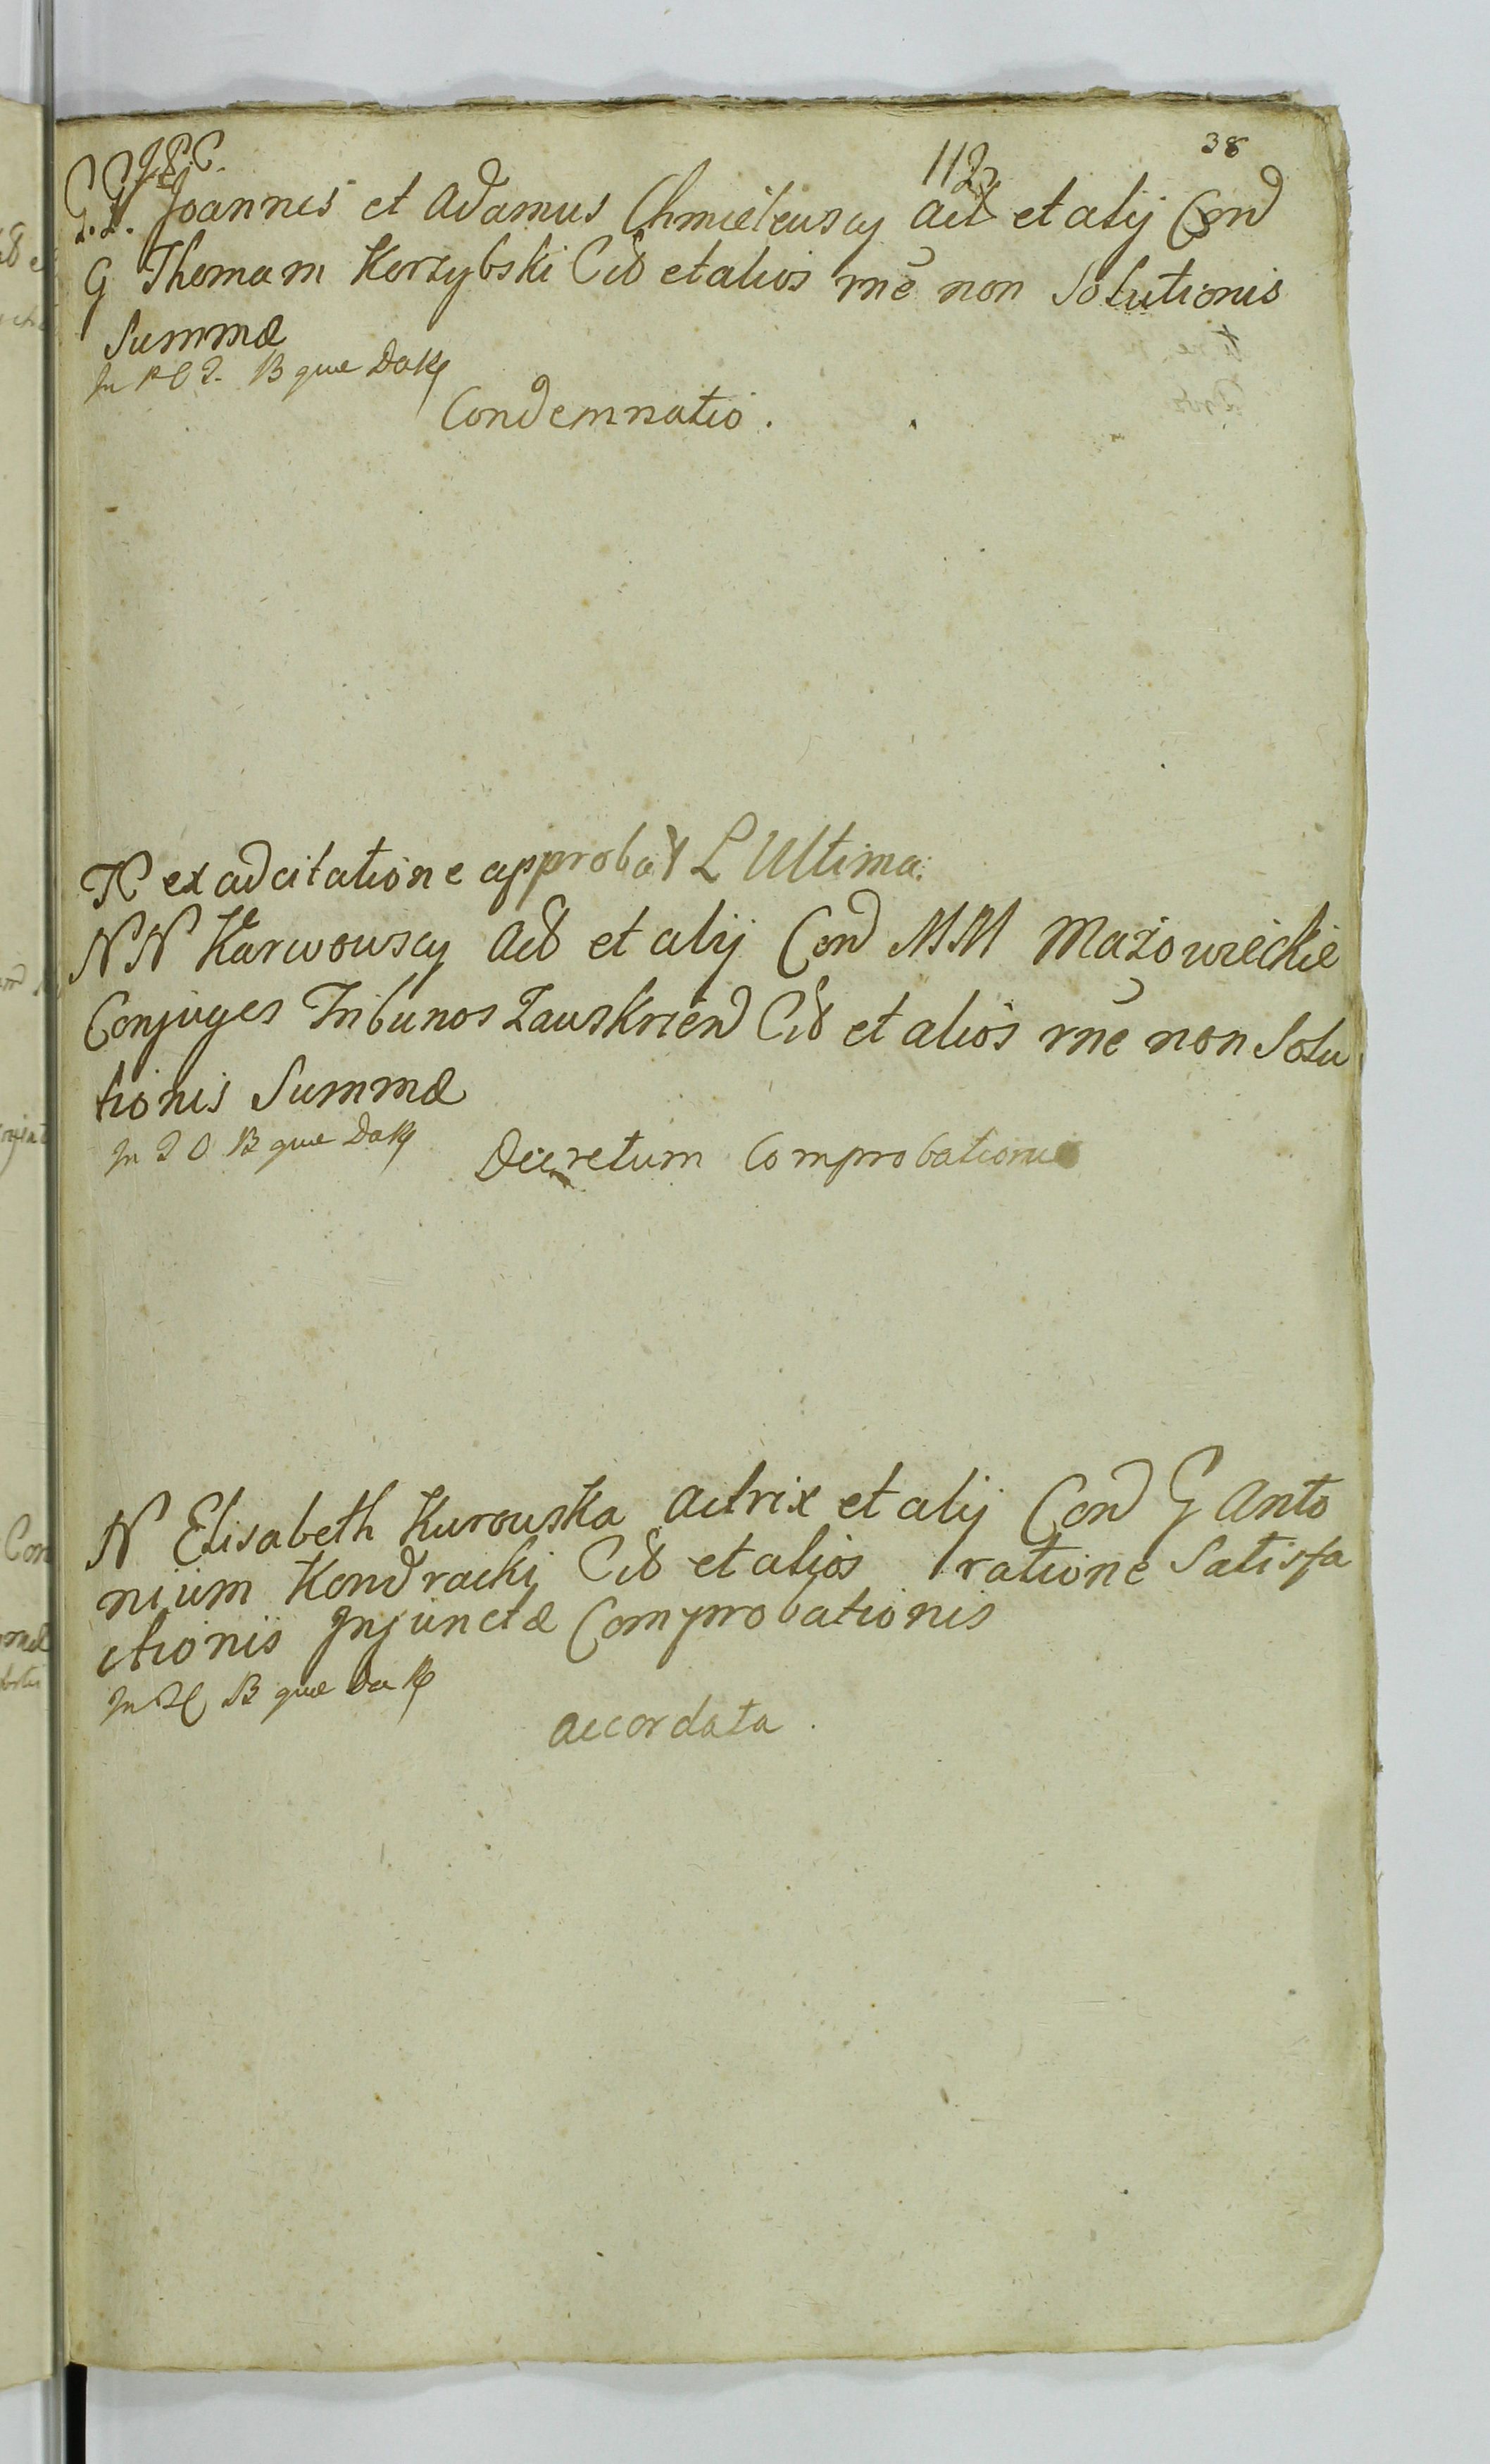 38
112
G.G. Joannes et Adamus Chmielewscy Act et alij Cond
G Thomam Korzybski Cit et alios rne non Solutionis
Summæ
In B que Dak
Condemnatio.
ex adcitatione approbat L Ultima:
NN Karwowscy Act et alij Cond MM Mazowieckie
Conjuges Tribunos Zauskrien Cit et alios rne non Solu
tionis Summæ
In B que Dak
Decretum Comprobationis
N Elisabeth Kurowska Actrix et alij Cond G Anto
nium Kondracki Cit et alios ratione Satisfa
ctionis Injunctæ Comprobationis
In B que Dak
accordata.